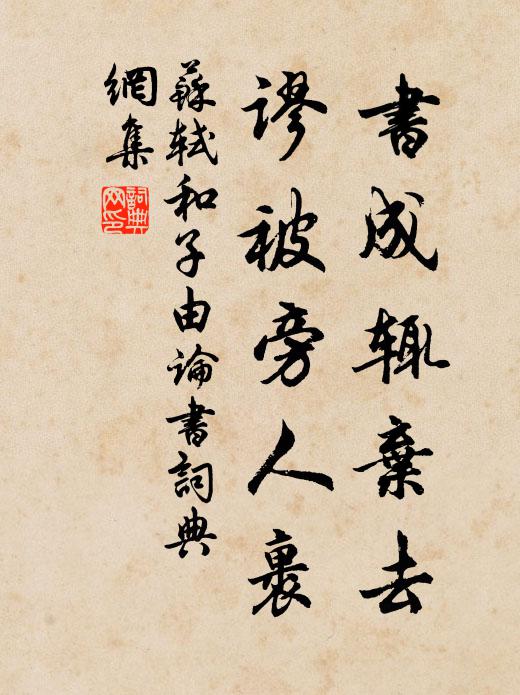 書成輒棄去
謬被旁人裹
蘇軾和子由論書詞典
網集
詞典
网印